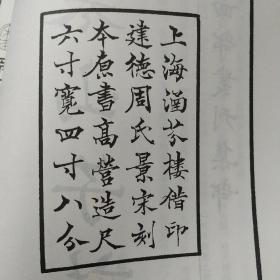 上海涵芬樓借印
建德周氏景宋刻
本原書高營造尺
六寸寬四寸八分